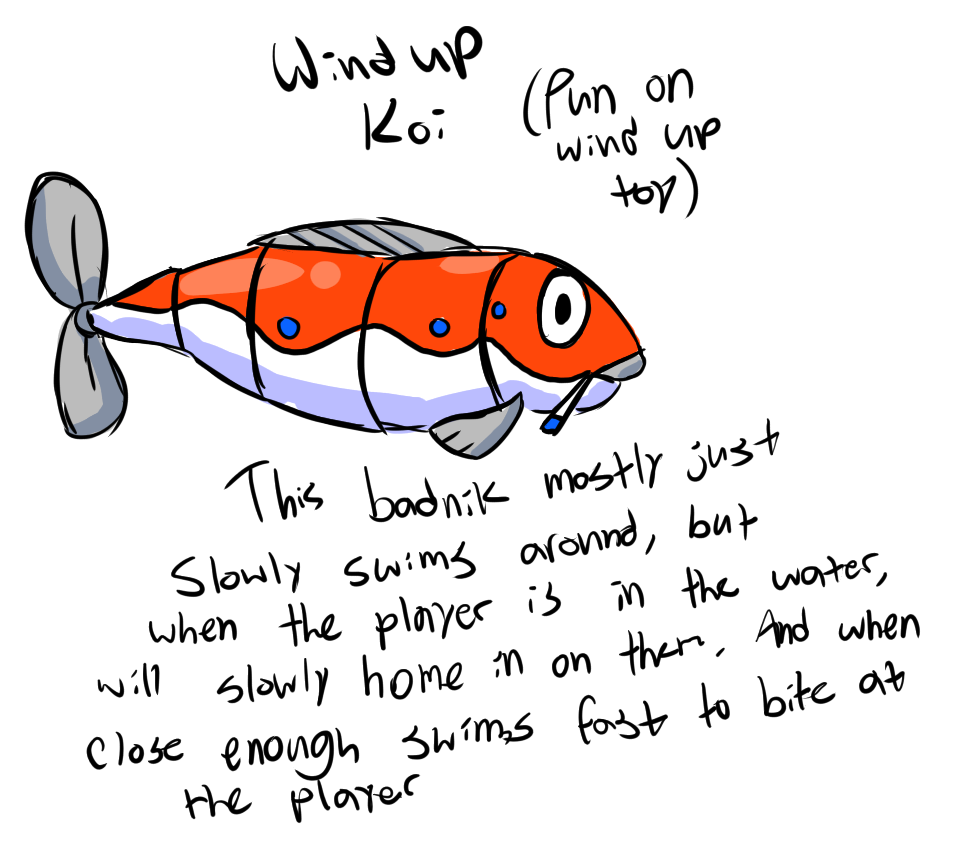 Wind up
Koi
(Pun on
wind up
toy)
This badnik mostly just
Slowly swims around, but
when the player is in the water,
will slowly home in on them. And when
close enough swims fast to bite at
the player